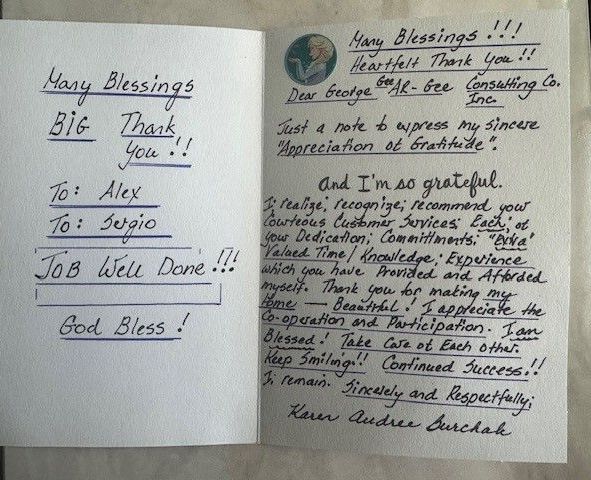 Many Blessings
BIG Thank
You!!
To: Alex
To: Sergio
JOB Well Done!!!
God Bless!
Many Blessings!!!
Heartfelt Thank You!!
Dear George Gee AR-Gee Consulting Co.
Inc.
Just a note to express my sincere
"Appreciation of Gratitude".
And I'm so grateful.
I; realize; recognize; recommend your
Courteous Customer Services; Each; of
your Dedication; Committments. "Extra"
Valued Time / Knowledge; Experience
which you have Provided and Afforded
myself. Thank you for making my
Home — Beautiful! I appreciate the
Co-operation and Participation. I am
Blessed! Take Care of Each Other.
Keep Smiling!! Continued Success!!
I; remain. Sincerely and Respectfully;
Karen Audree Burchak